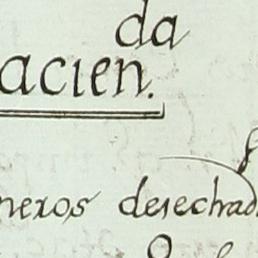 da
acien.
neros desechad